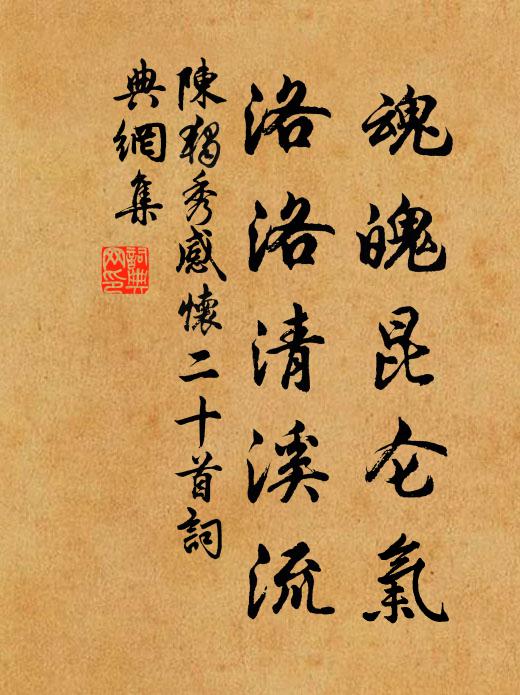 魂魄昆仑氣
洛洛清溪流
陳獨秀感懷二十首詞
典網集
詞典
网印